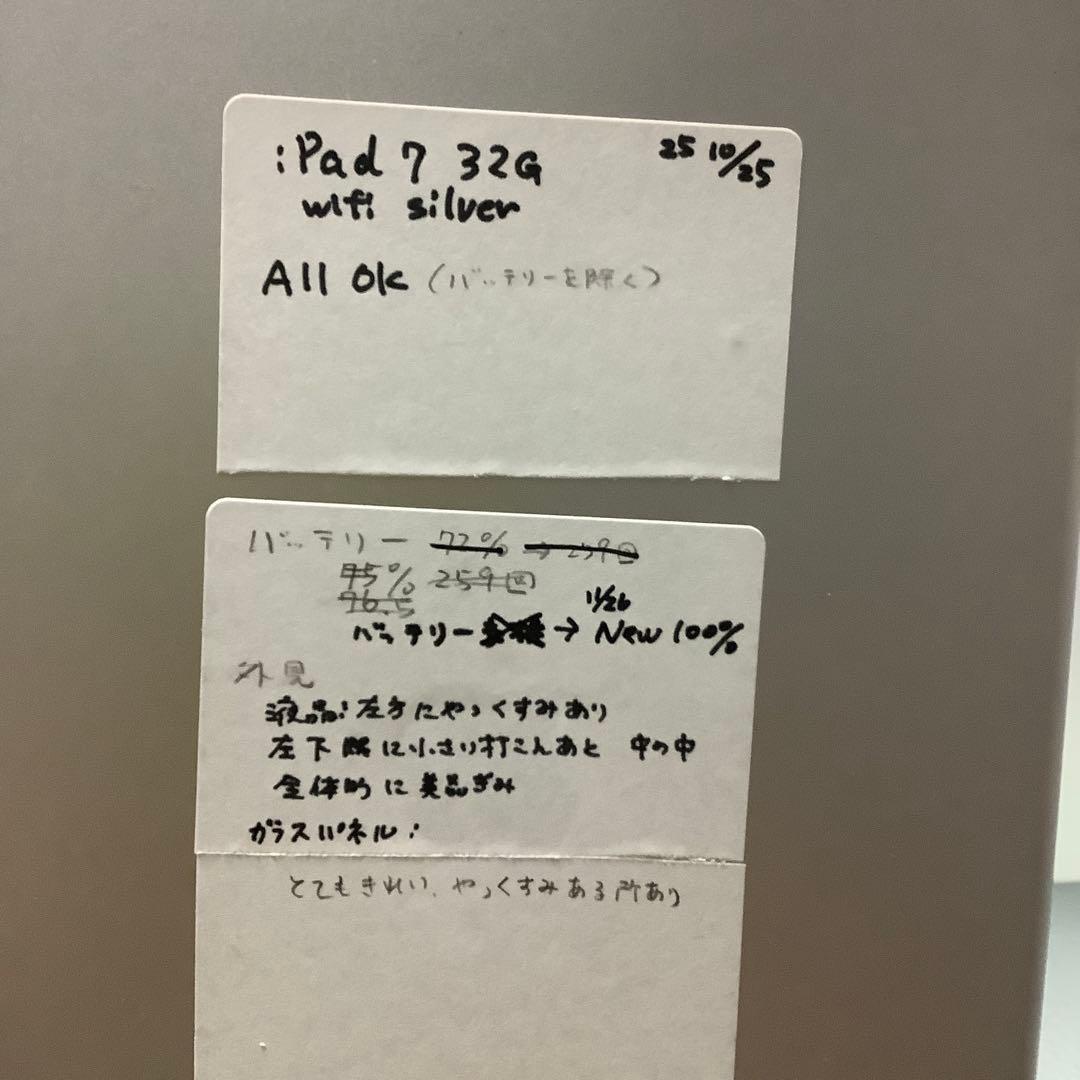 iPad 7 32G 25 10/25
wifi silver
All Ok (バッテリーを除く)
バッテリー 72% → 259回
75% 259回
76.5
11/26
バッテリー → New 100%
外見
液晶: 左方にやっくすみあり
左下隅に小さい打こんあと 中の中
全体的に美品ぎみ
ガラスパネル:
とてもきれい、やっくすみある所あり